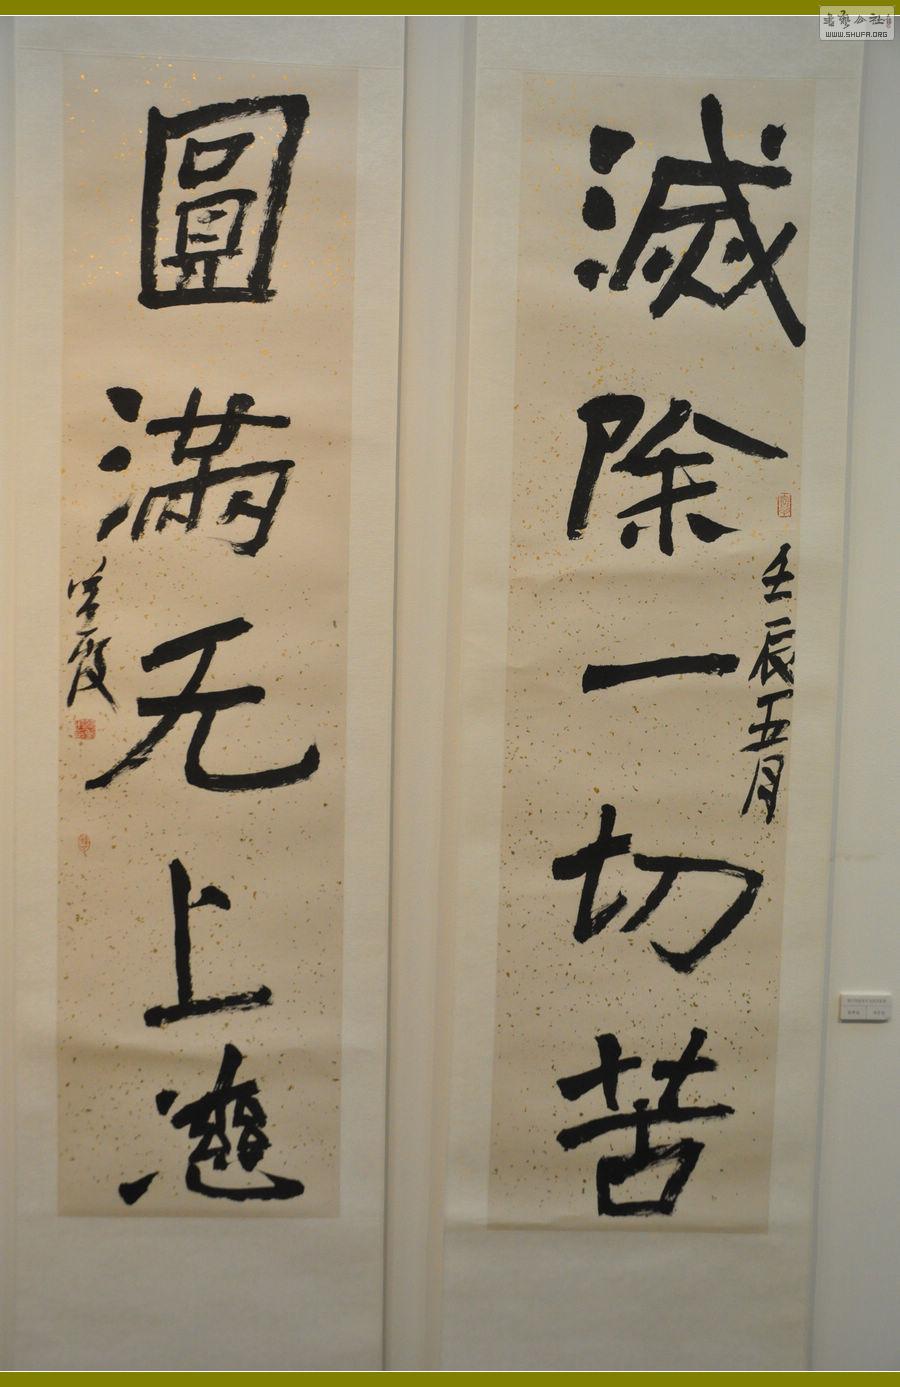 書藝公社
WWW.SHUFA.ORG
滅除一切苦
壬辰五月
圓滿无上慈